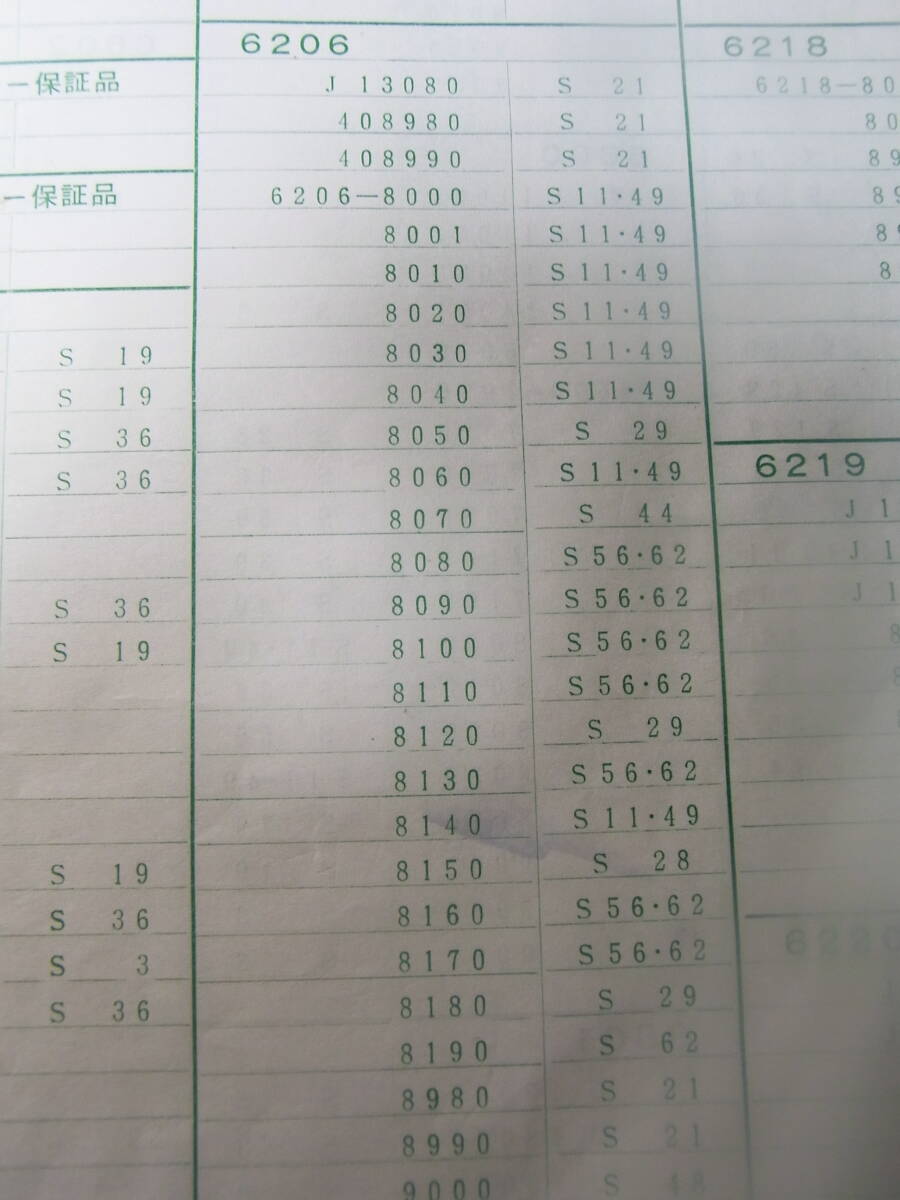 一保証品
一保証品
S 19
S 19
S 36
S 36
S 36
S 19
S 19
S 36
S 3
S 36
6206
J 13080 S 21
408980 S 21
408990 S 21
6206-8000 S 11・49
8001 S 11・49
8010 S 11・49
8020 S 11・49
8030 S 11・49
8040 S 11・49
8050 S 29
8060 S 11・49
8070 S 44
8080 S 56・62
8090 S 56・62
8100 S 56・62
8110 S 56・62
8120 S 29
8130 S 56・62
8140 S 11・49
8150 S 28
8160 S 56・62
8170 S 56・62
8180 S 29
8190 S 62
8980 S 21
8990 S 21
9000 S 48
6218
6218-80
80
89
89
89
8
6219
J 1
J 1
J 1